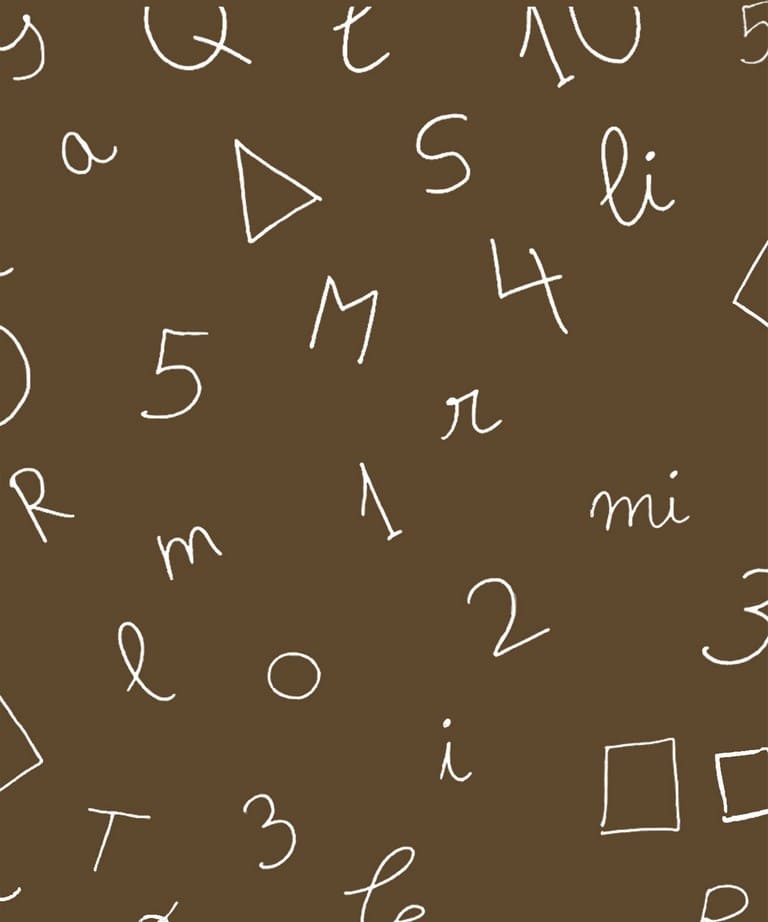 s Q t 1 U 5
a S li
4
M
5
r
R 1 mi
m
2 3
l o
i
T 3
le R